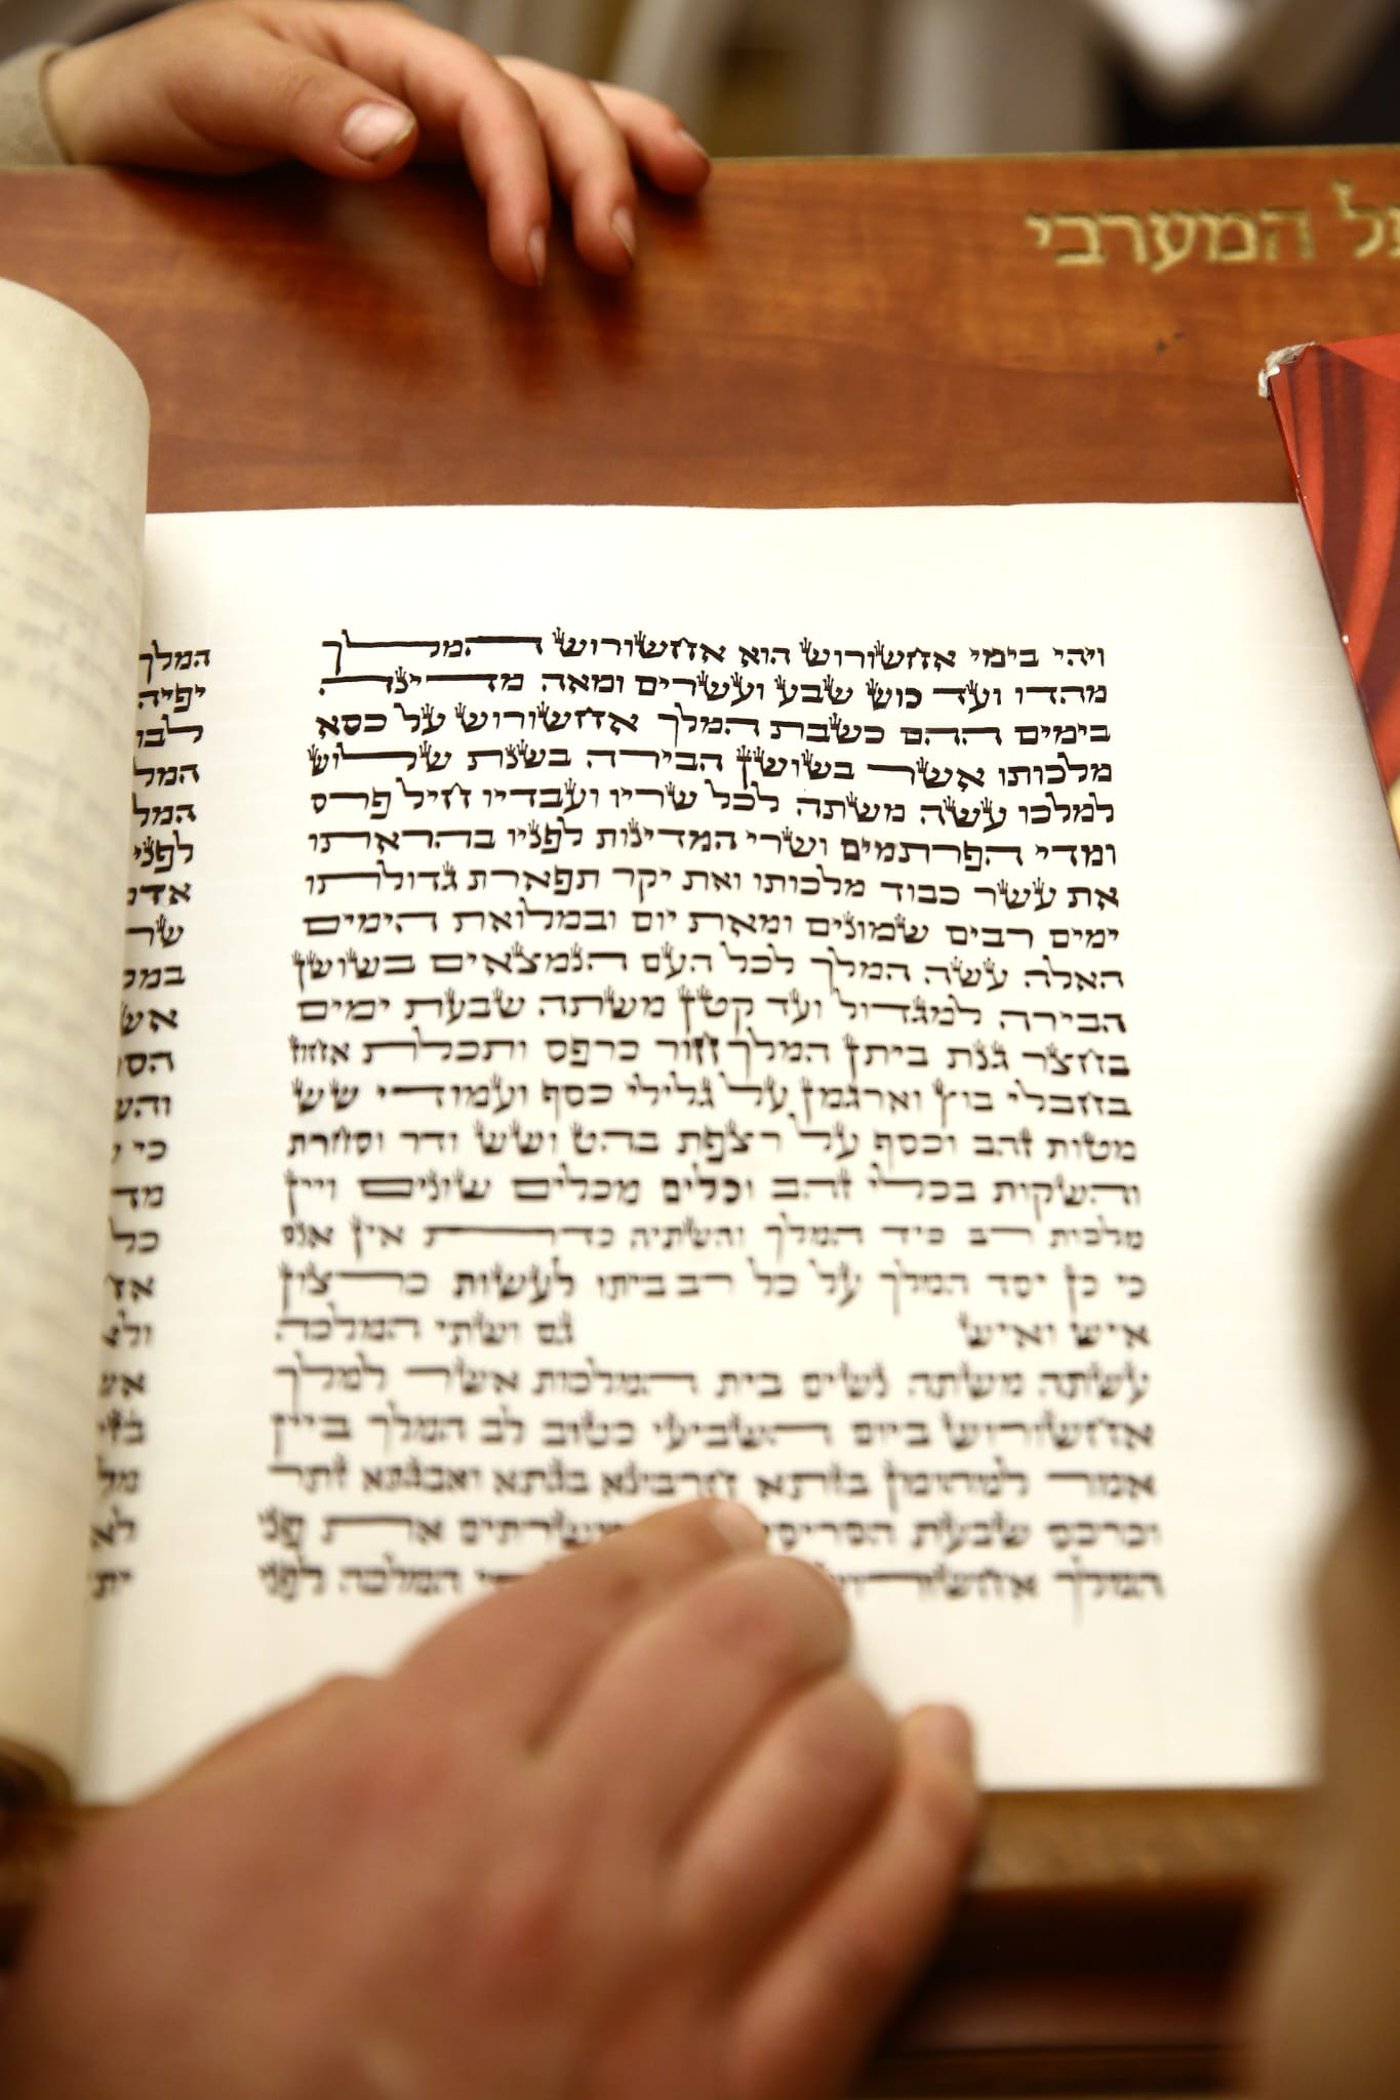 המערבי
ויהי בימי אחשורוש הוא אחשורוש המלך
מהדו ועד כוש שבע ועשרים ומאה מדינה
בימים ההם כשבת המלך אחשורוש על כסא
מלכותו אשר בשושן הבירה בשנת שלוש
למלכו עשה משתה לכל שריו ועבדיו חיל פרס
ומדי הפרתמים ושרי המדינות לפניו בהראתו
את עשר כבוד מלכותו ואת יקר תפארת גדולתו
ימים רבים שמונים ומאת יום ובמלואת הימים
האלה עשה המלך לכל העם הנמצאים בשושן
הבירה למגדול ועד קטן משתה שבעת ימים
בחצר גנת ביתן המלך חור כרפס ותכלת אחוז
בחבלי בוץ וארגמן על גלילי כסף ועמודי שש
מטות זהב וכסף על רצפת בהט ושש ודר וסחרת
והשקות בכלי זהב וכלים מכלים שונים ויין
מלכות רב כיד המלך והשתיה כדת אין אנס
כי כן יסד המלך על כל רב ביתו לעשות כרצון
איש ואיש גם ושתי המלכה
עשתה משתה נשים בית המלכות אשר למלך
אחשורוש ביום השביעי כטוב לב המלך ביין
אמר למהומן בזתא חרבונא בגתא ואבגתא זתר
וכרכס שבעת הסריסים המשרתים את פני
המלך אחשורוש המלכה לפני
המלך
יפיה